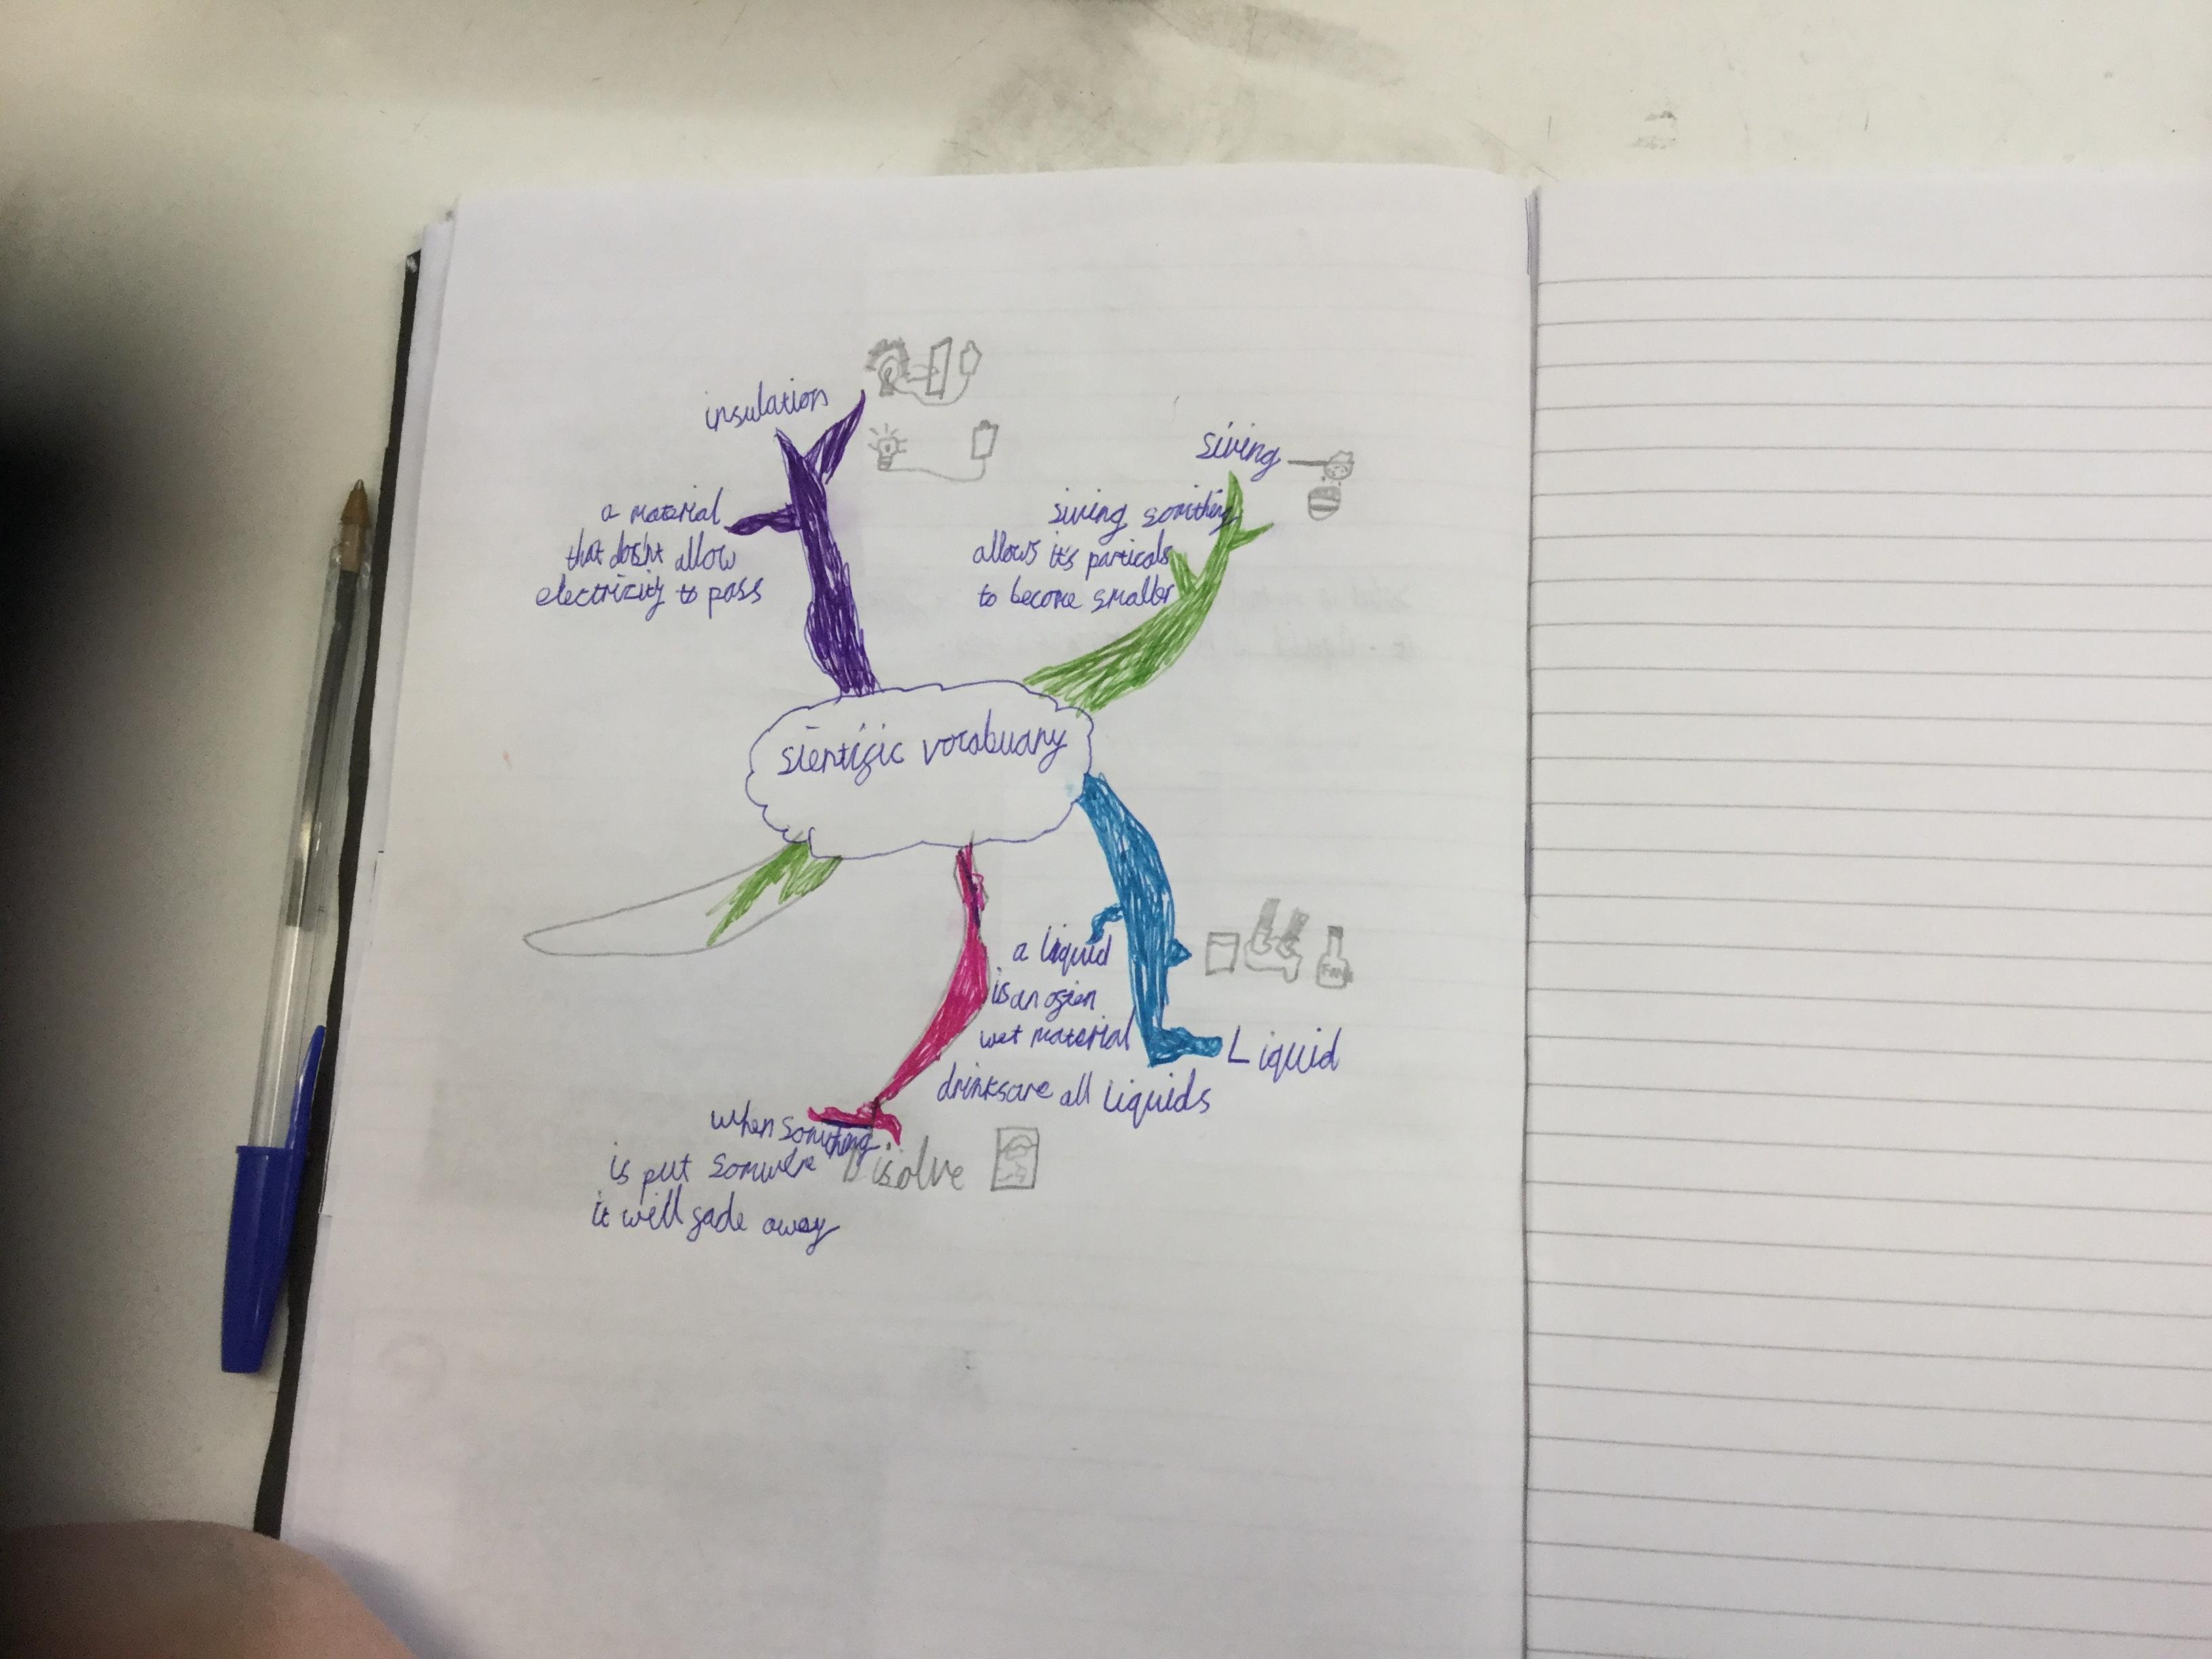 insulation
a material
that dosn't allow
electrizity to pass
siving
siving somithing
allows it's particals
to become smaller
sientific vocabuary
a liquid
is an ofien
wet material
drinks are all liquids
Liquid
when somithing
is put somwere
it will fade away
Disolve